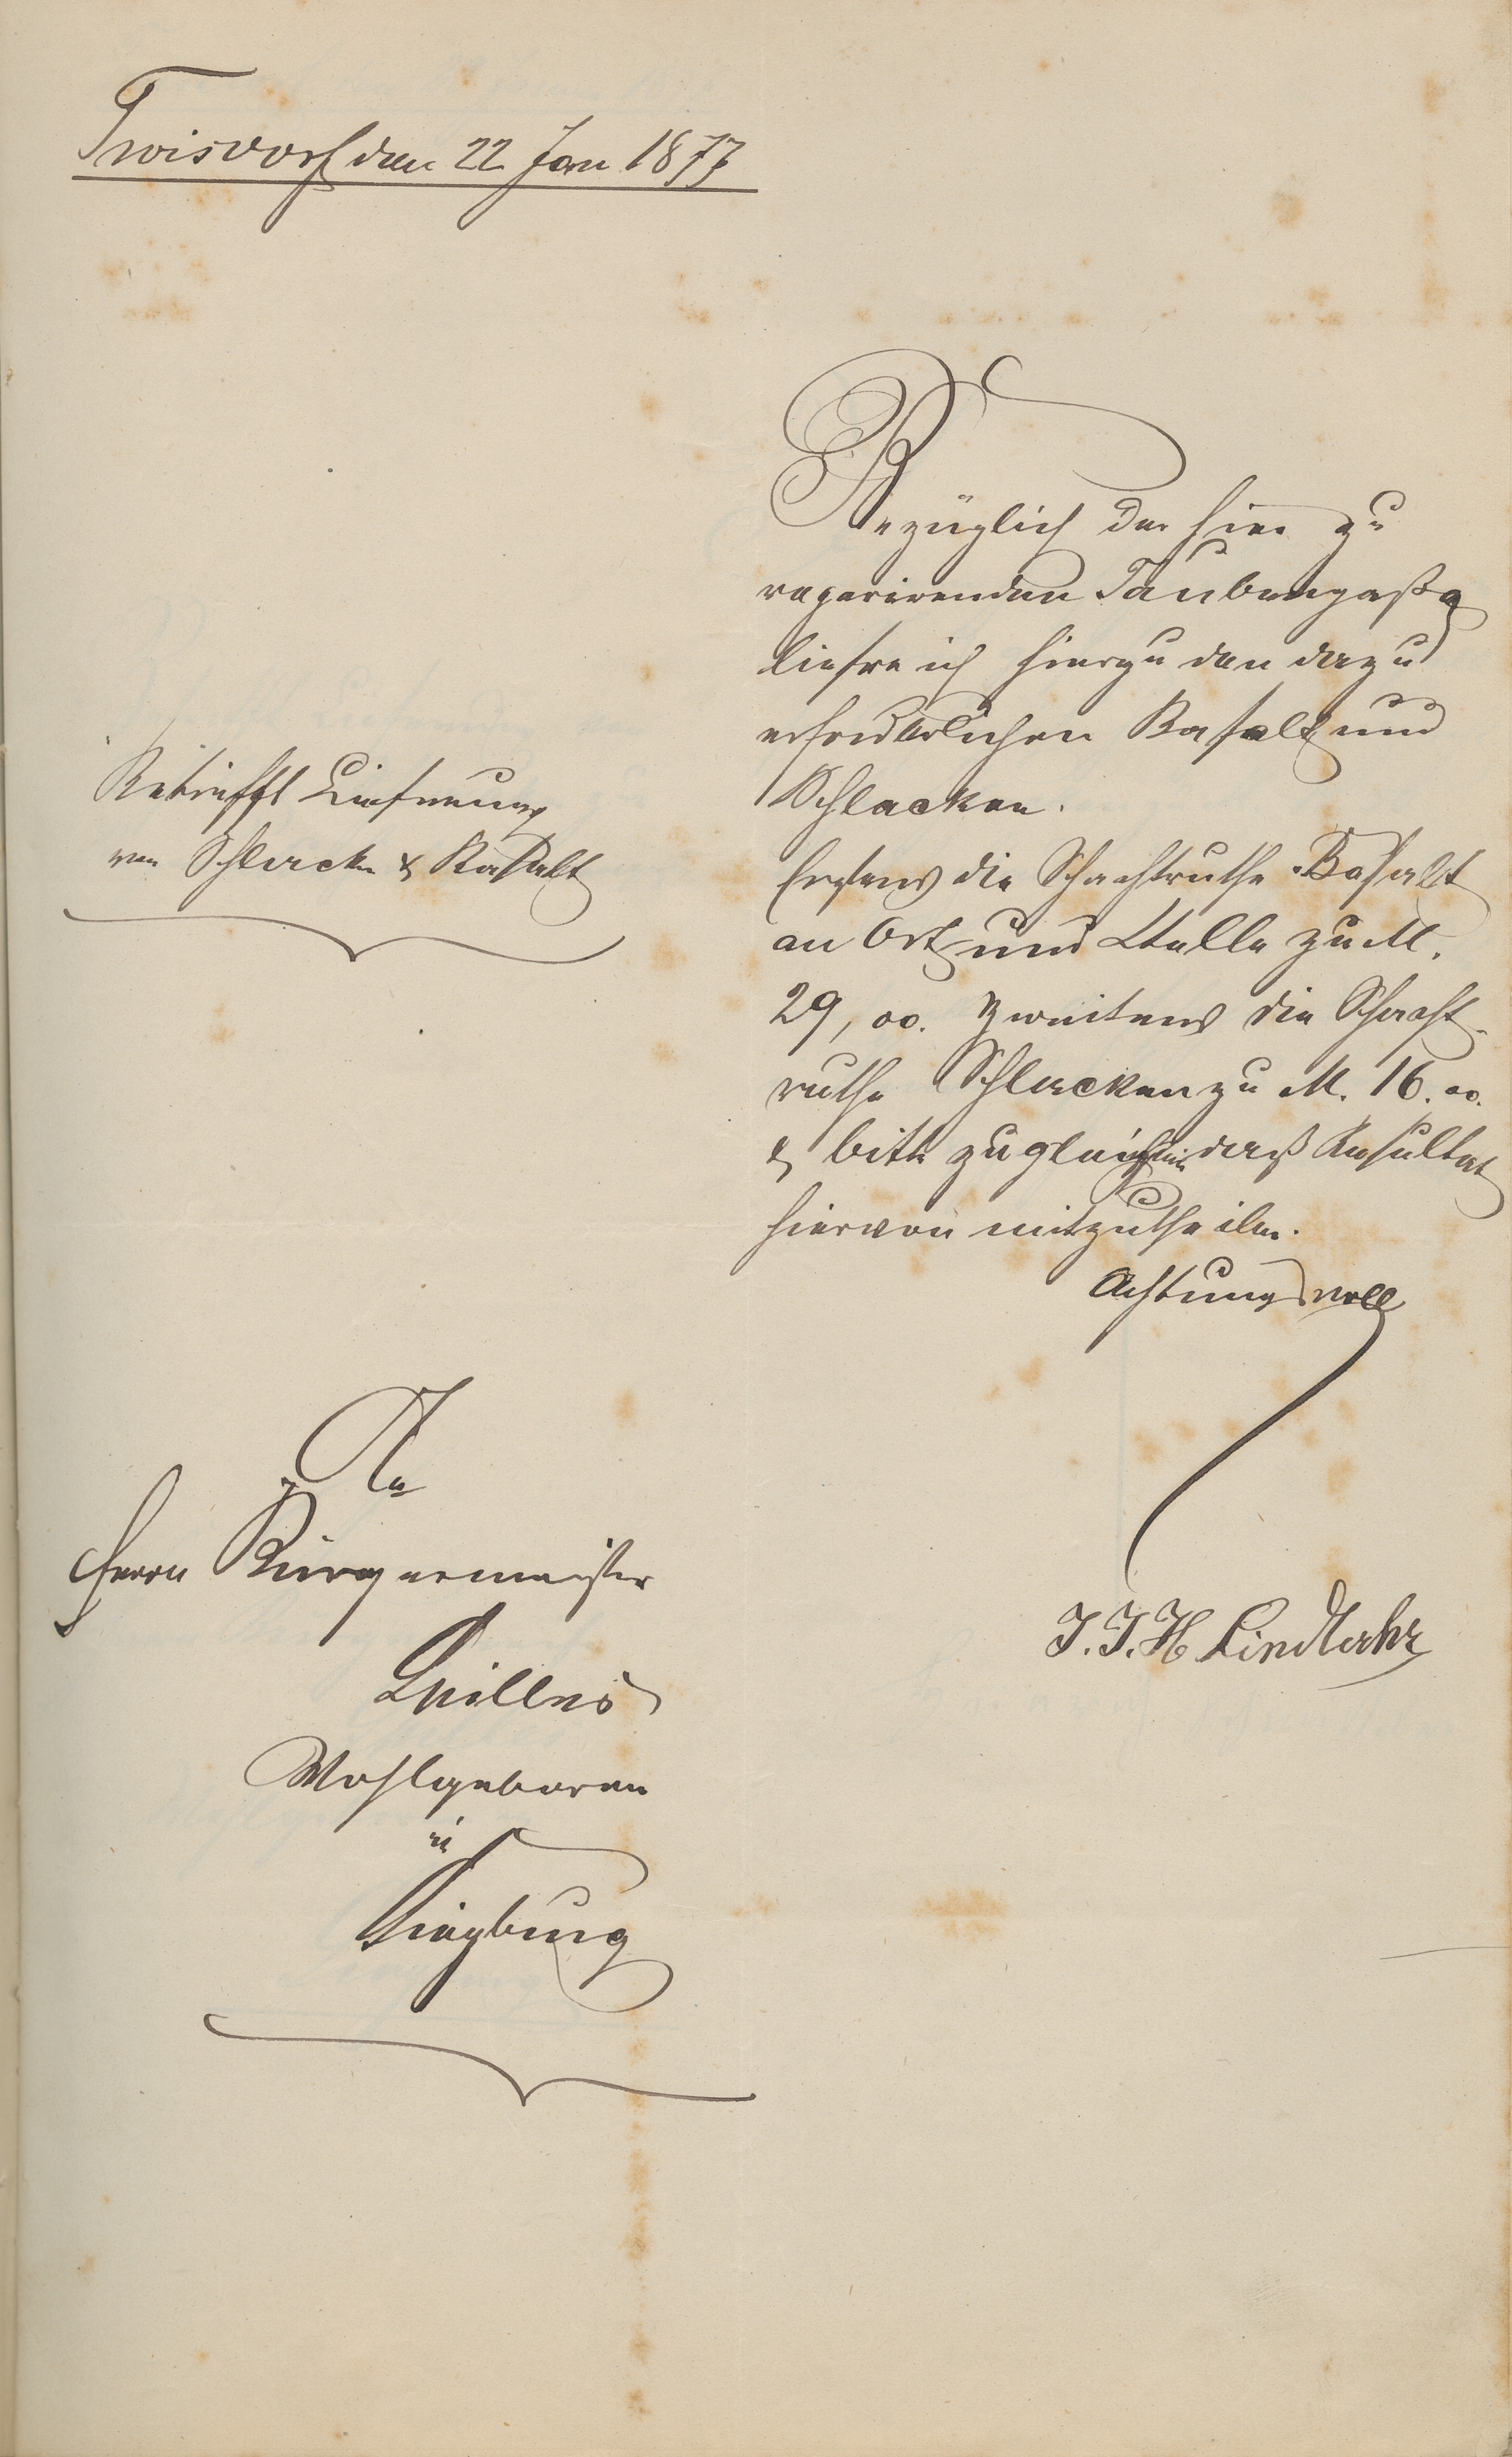 Troisdorf den 22 Jan 1877
Bezüglich der hier zu
reparirenden Taubengaße
liefre ich hierzu den dazu
erforderlichen Basalt und
Schlacken.
Betrifft Lieferung
von Schlacken & Basalt
Erstens die Schachtruthe Basalt
an Ort und Stelle zu M.
29, oo. Zweitens die Schacht-
ruthe Schlacken zu M. 16. oo.
& bitte zugleich mir daß Resultat
hiervon mitzutheilen.
Achtungsvoll
J. J. H Lindlahr
An
Herrn Bürgermeister
Wohlgeboren
in
Siegburg